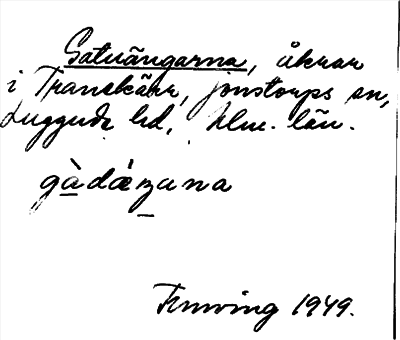 Gatuängarna, åkrar
i Tranekärr, Jonstorps sn,
Luggude hd, Mlm. län.
gàdæŋana
1949.